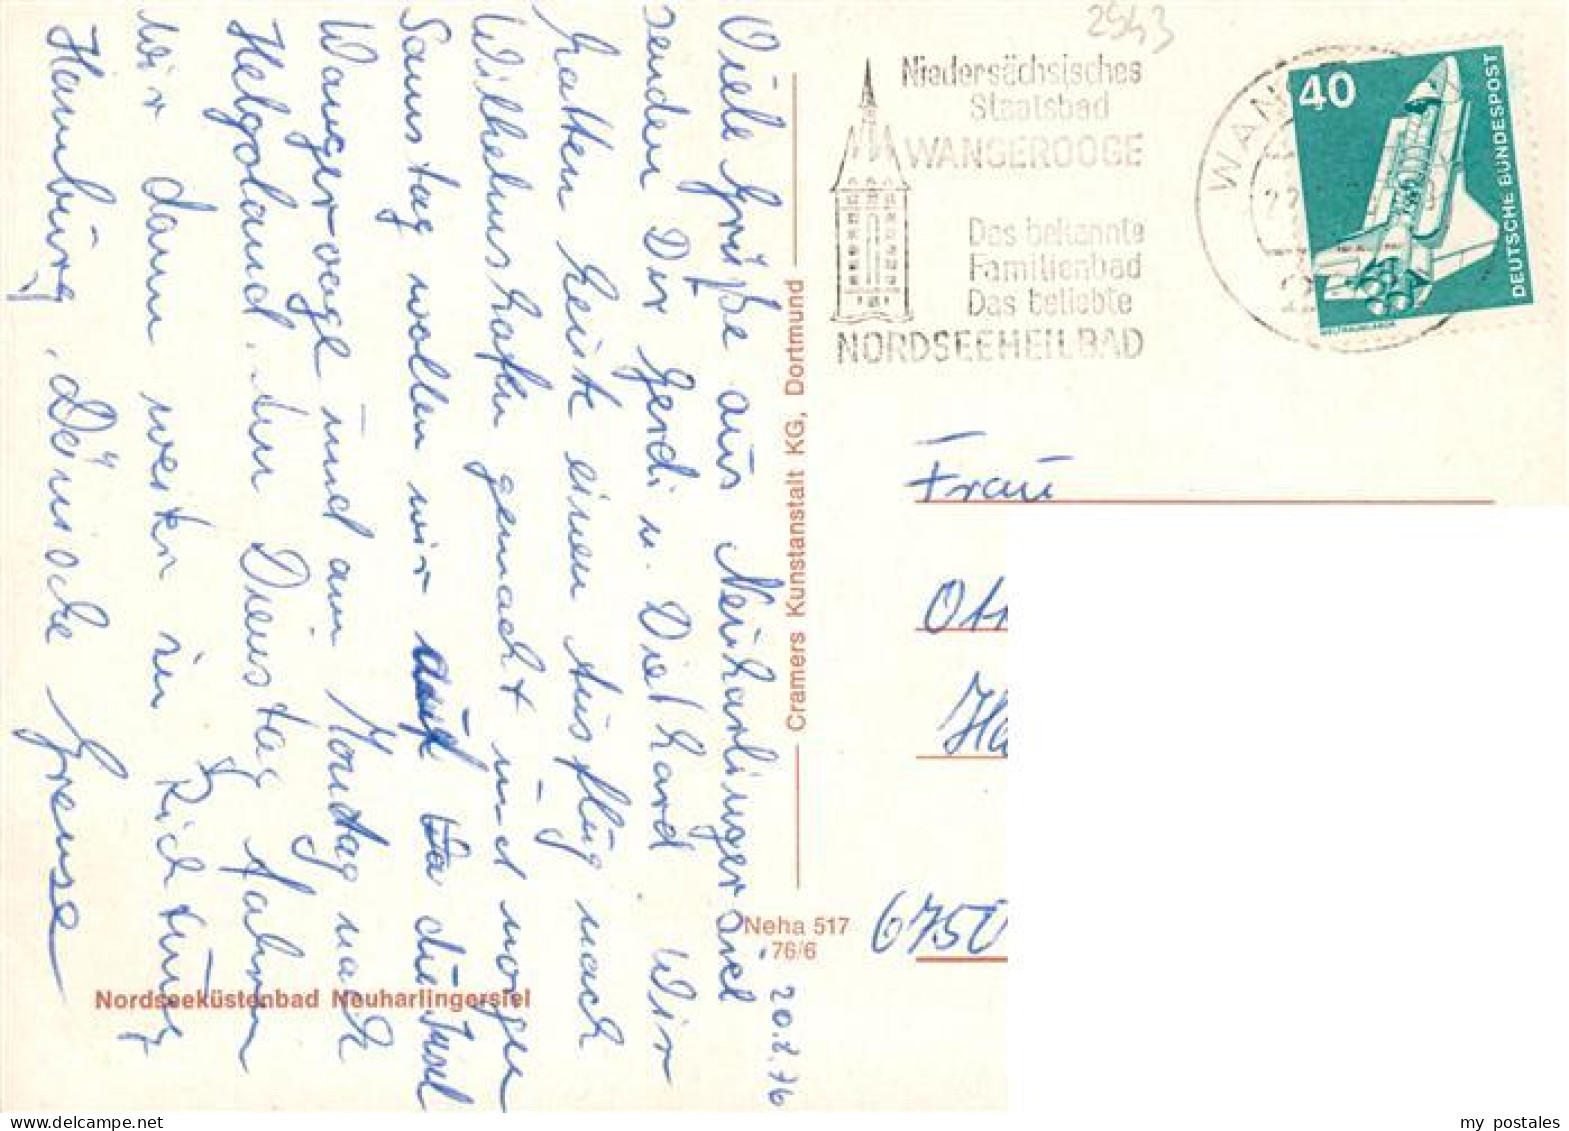 Viele Grüße aus Neuharlingersiel
senden Dir Gerdi u. Diethard Wir
hatten heute einen Ausflug nach
Wilhelmshafen gemacht und morgen
Samstag wollen wir auf die Insel
Wangerooge und am Montag nach
Helgoland. Am Dienstag fahren
wir dann weiter in Richtung
Hamburg, Dänische Grenze
20.8.76
Nordseeküstenbad Neuharlingersiel
Cramers Kunstanstalt KG, Dortmund
Neha 517
76/6
2943
Niedersächsisches
Staatsbad
WANGEROOGE
Das bekannte
Familienbad
Das beliebte
NORDSEEHEILBAD
WAN
40
DEUTSCHE BUNDESPOST
WELTRAUMLABOR
Frau
6750
my postales